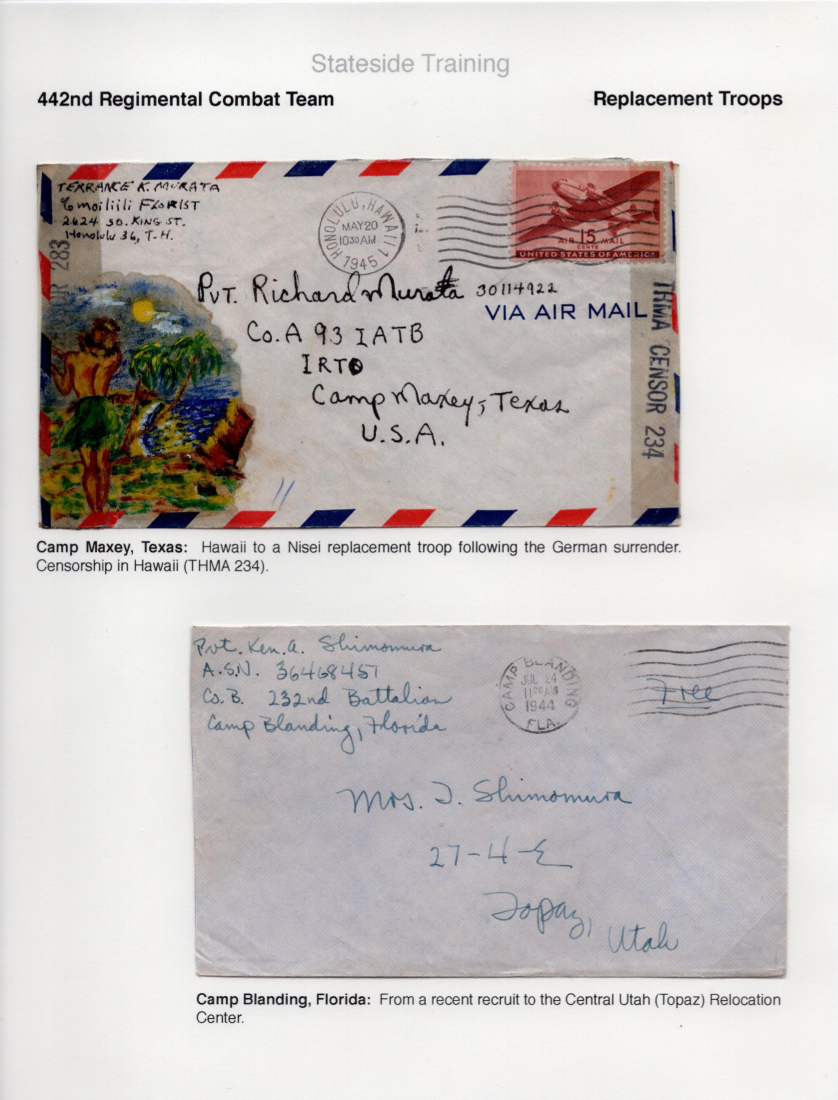 Stateside Training
442nd Regimental Combat Team
Replacement Troops
TERRANCE K. MURATA
c/o moiliili FLORIST
2624 SO. KING ST.
Honolulu 36, T.H.
HONOLULU, HAWAII
MAY 20
10 30 AM
1945
1
AIR 15 MAIL
CENTS
UNITED STATES OF AMERICA
Pvt. Richard Murata 30114922
VIA AIR MAIL
Co. A 93 IATB
IRTC
Camp Maxey, Texas
U.S.A.
THMA CENSOR 234
283
11
Camp Maxey, Texas: Hawaii to a Nisei replacement troop following the German surrender.
Censorship in Hawaii (THMA 234).
Pvt. Ken. A. Shimomura
A.S.N. 36468457
Co. B. 232nd Battalion
Camp Blanding, Florida
CAMP BLANDING
JUL 24
11 00 AM
1944
FLA.
Free
Mrs. I. Shimomura
27-4-E
Topaz,
Utah
Camp Blanding, Florida: From a recent recruit to the Central Utah (Topaz) Relocation
Center.